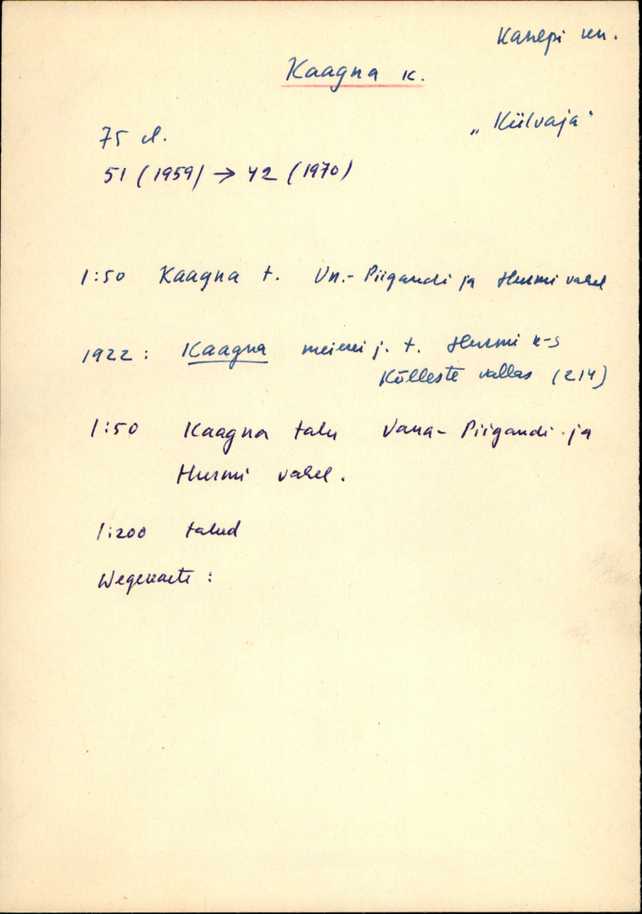 Kanepi kn.
Kaagna k.
"Külvaja"
75 el.
51 (1959) → 42 (1970)
1:50 Kaagna t. Vn.-Piigandi ja Hurmi vahel
1922: Kaagna meierei j. t. Hurmi k-s
Kõlleste vallas (214)
1:50 Kaagna talu Vana-Piigandi ja
Hurmi vahel.
1:200 talud
Wegekarte: